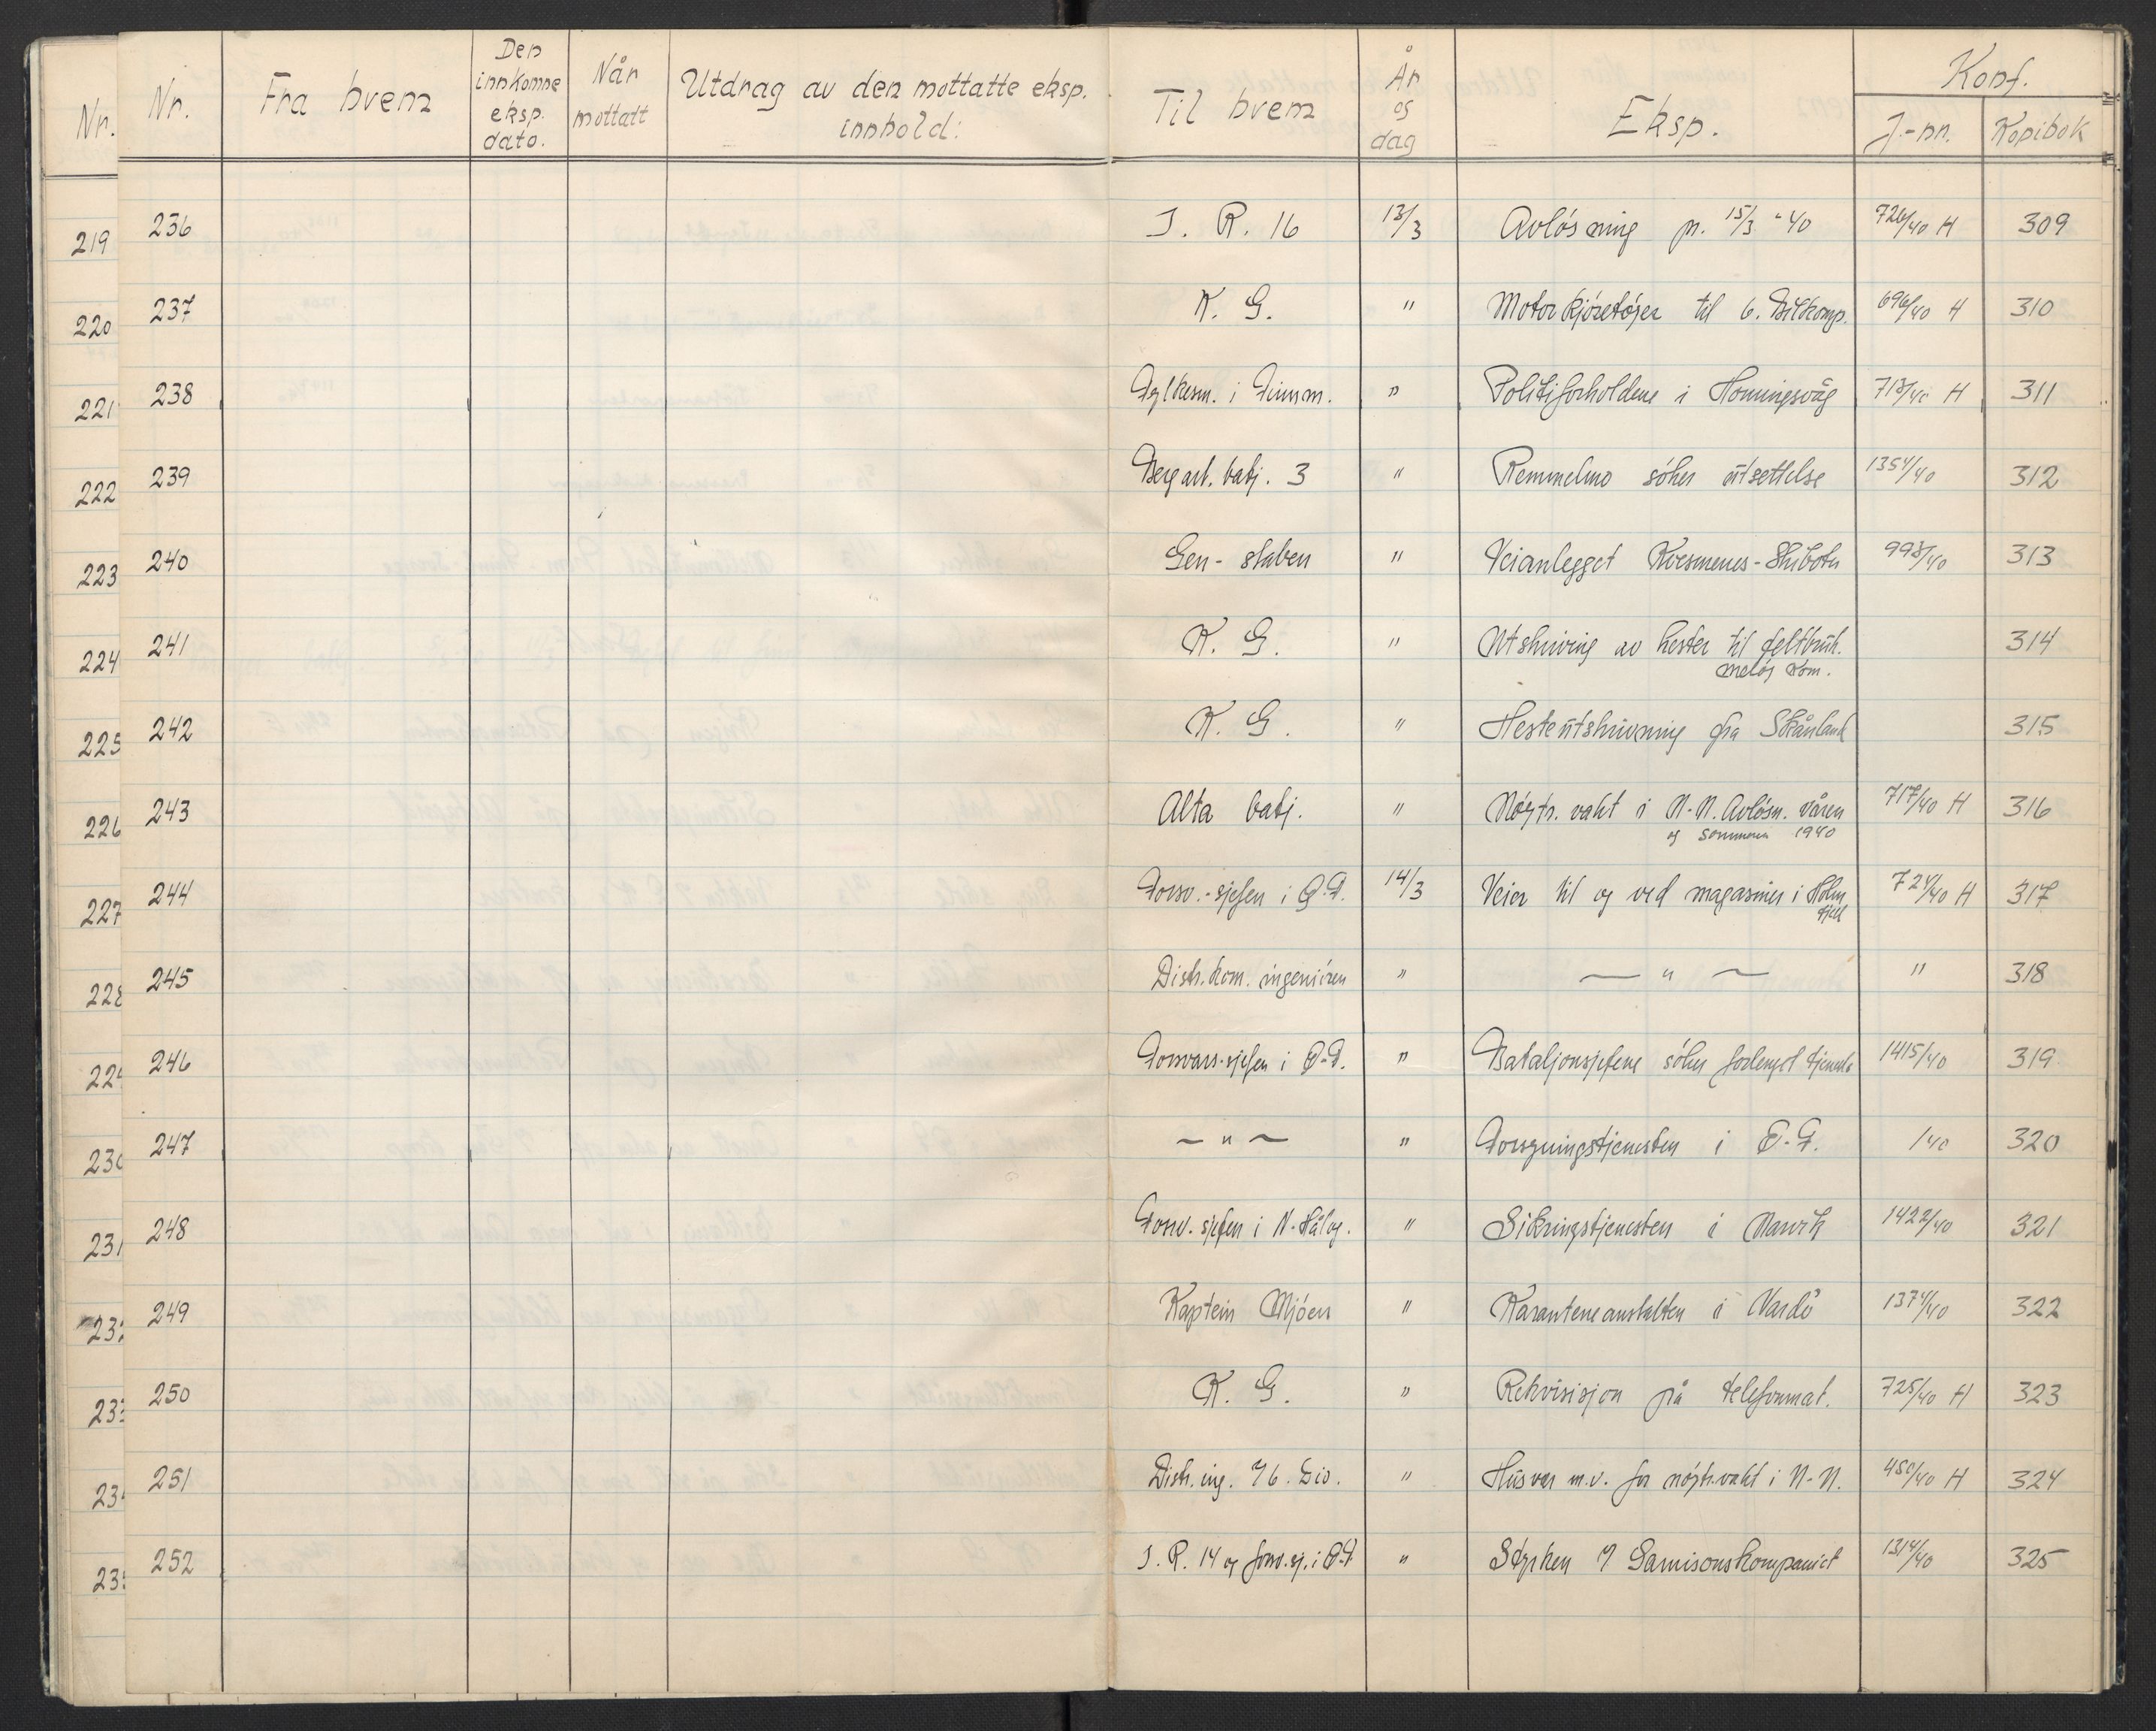 Nr. Nr. Fra hvem Den innkomne eksp. dato. Når mottatt Utdrag av den mottatte eksp. innhold: Til hvem År og dag Eksp. Konf. J.-nr. Kopibok
219 236 I. R. 16 13/3 Avløsning pr. 15/3 - 40 726/40 H 309
220 237 K. G. " Motorkjøretøjer til 6. Bilkomp. 696/40 H 310
221 238 Fylkesm. i Finnm. " Politiforholdene i Honningsvåg 713/40 H 311
222 239 Bergart. batj. 3 " Remmelmo søker utsettelse 1354/40 312
223 240 Gen-staben " Veianlegget Kvesmenes-Skibotn 998/40 313
224 241 K. G. " Utskriving av hester til feltbruk. 314
Meløy kom.
225 242 K. G. " Hesteutskrivning fra Skånland 315
226 243 Alta batj. " Nøytr. vakt i N.-N. Avløsn. våren 717/40 H 316
og sommeren 1940
227 244 Forsv.-sjefen i Ø-F. 14/3 Veier til og ved magasiner i Holm 724/40 H 317
fjell
228 245 Distr. kom. ingeniøren " — " — " 318
229 246 Forsvars-sjefen i Ø-F. " Bataljonsjefene søker forlenget tjeneste 1415/40 319
230 247 — " — " Forsyningstjenesten i Ø-F. /40 320
231 248 Forsv. sjefen i N-Hålog. " Sikringstjenesten i Narvik 1422/40 321
232 249 Kaptein Mjøen " Karanteneanstalten i Vardø 1374/40 322
233 250 K. G. " Rekvisisjon på telefonmat. 725/40 H 323
23 251 Distr. ing. 7/6. Div. " Husvær m.v. for nøytr.vakt i N-N. 450/40 H 324
23 252 I. R. 14 og forsv.sj. i Ø-F " Styrken 7 Garnisonskompaniet 1314/40 325